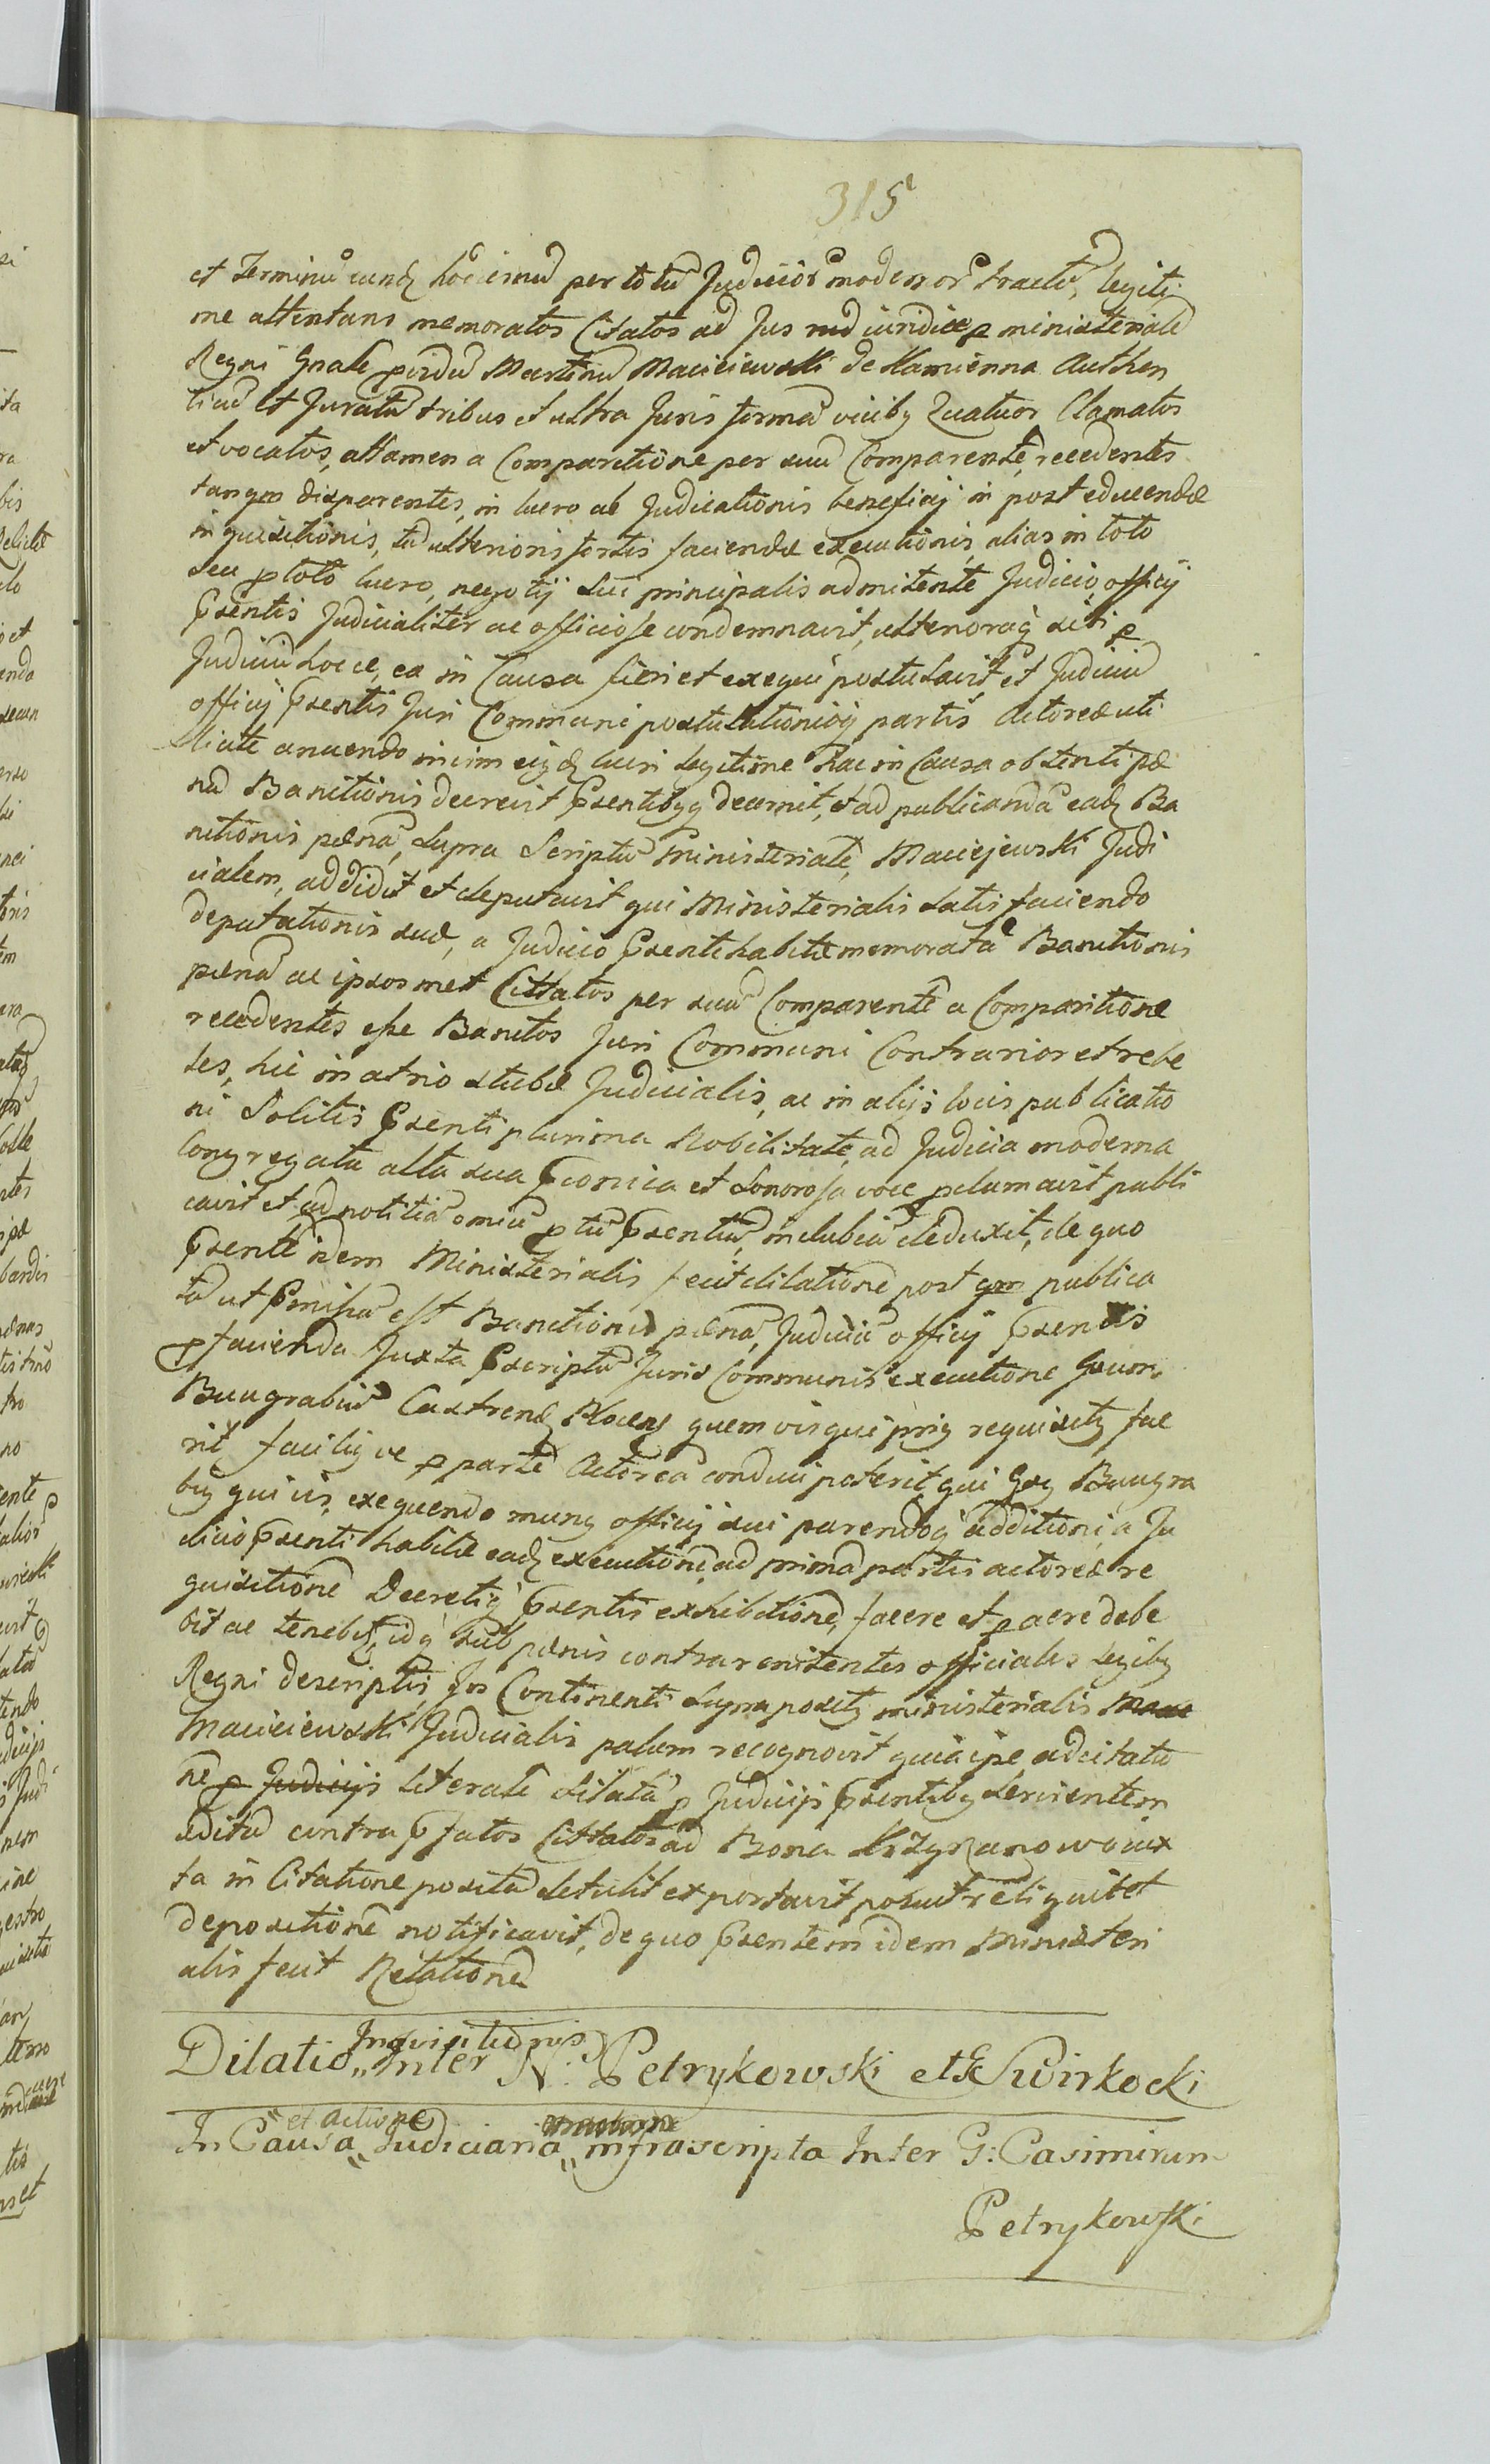 315
et Terminū eund hodiernū per totū Judicior modernor tractū, legiti
me attentans memoratos Citatos ad Jus iuridice p ministerialē
Regni Gnalē pvidū Martinū Maciciewski de Kamienna Authen
ticū et Juratū tribus et ultra Juris formā vicibq Quatuor Clamatos
et vocatos, attamen a Comparitione per suū Comparentē recedentes
tanqm disparentes, in lucro ab Judicationis beneficij in post educendæ
inquisitionis, tū ulterioris fortis faciendæ executionis, alias in toto
seu p toto lucro, negotij sui principalis admitente Judicio officij
Psentis Judicialiter ac officiose condemnavit, ulterioraq sibi p
Judiciū hocce, ea in Causa fieri et exequi postulavit, et Judiciū
officij Psentis Juri Communi postulationiq partis Actoreæ uti
licite anuendo in vim eiqd lucri legitime hac in Causa obtenti pæ
nā Banitionis decrevit Psentibqq decernit, et ad publicandā eand Ba
nitionis pænā, supra Scriptū Ministerialē, Maciejewski Judi
cialem, addidit et deputavit qui Ministerialis satisfaciendo
deputationis suæ, a Judicio Psenti habitæ memoratā Banitionis
pænā ac ipsosmet Cittatos per suū Comparentē a Comparitione
recedentes esse Banitos Juri Communi Contrarios et rebe
les, hic in atrio stubæ Judicialis, ac in alijs locis publicatio
ni Solitis Psenti plurima Nobilitate, ad Judicia moderna
Congregata alta sua Pconica et sonorosa voce pclamavit publi
cavit et ad notitiā omiū p tū Psentiū, indubiā deduxit, de quo
Psentē idem Ministerialis fecit dilationē post qm publica
tā ut Pmissū est Banitionis pænā, Judiciū officij Psentis
p facienda Juxta Pscriptū Juris Communis executione Gener.
Burgrabiū Castrens quemvis qui priq requisitq fue
rit faciliq ve p partē Actoreā conduci poterit, qui Gsq Burgra
biq quivis, exequendo munq officij sui parendoq additioni, a Ju
dicio Psenti habitæ eand executionē, ad primā partis actoreæ re
quisitionē Decretiq Psentis exhibitionē, facere et p acere debe
bit ac tenebit, idq sub pænis contra renitentes officiales legibq
Regni descriptis, Jos Continenti supra positq ministerialis
Maciciewski Judicialis palam recognovit quia ipe adcitatio
nē p Judicijs literalē Citatā p Judicijs Psentibq servientem
editā contra Pfatos Cittatos ad Bona Krzyzanowo iux
ta in Citatione posita detulit et portavit posuit reliquit et
depositionē notificavit, de quo Psentem idem Ministeri
alis fecit Relationē
Dilatio „Inquisitionis„ Inter N. Petrykowski et G Swirkocki
In Causa „et Actione„ Judiciaria „ infrascripta Inter G: Casimirum
Petrykowski